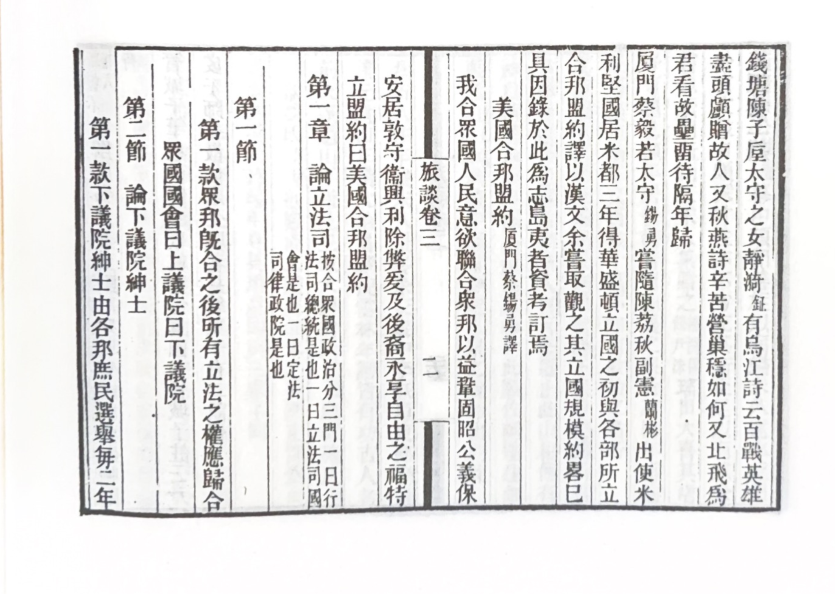 錢塘陳子厔太守之女靜漪鉦有烏江詩云百戰英雄
盡頭顱贈故人又秋燕詩辛苦營巢穩如何又北飛爲
君看故壘畱待隔年歸
厦門蔡毅若太守錫勇嘗隨陳荔秋副憲蘭彬出使米
利堅國居米都三年得華盛頓立國之初與各部所立
合邦盟約譯以漢文余嘗取觀之其立國規模約畧已
具因錄於此爲志島夷者資考訂焉
美國合邦盟約厦門蔡錫勇譯
我合眾國人民意欲聯合眾邦以益鞏固昭公義保
旅談卷三
安居敦守衞興利除弊爰及後裔永享自由之福特
立盟約曰美國合邦盟約
第一章 論立法司
按合眾國政治分三門一曰行
法司總統是也一曰立法司國
會是也一曰定法
司律政院是也
第一節
第一款眾邦旣合之後所有立法之權應歸合
眾國國會曰上議院曰下議院
第二節 論下議院紳士
第一款下議院紳士由各邦庶民選舉每二年